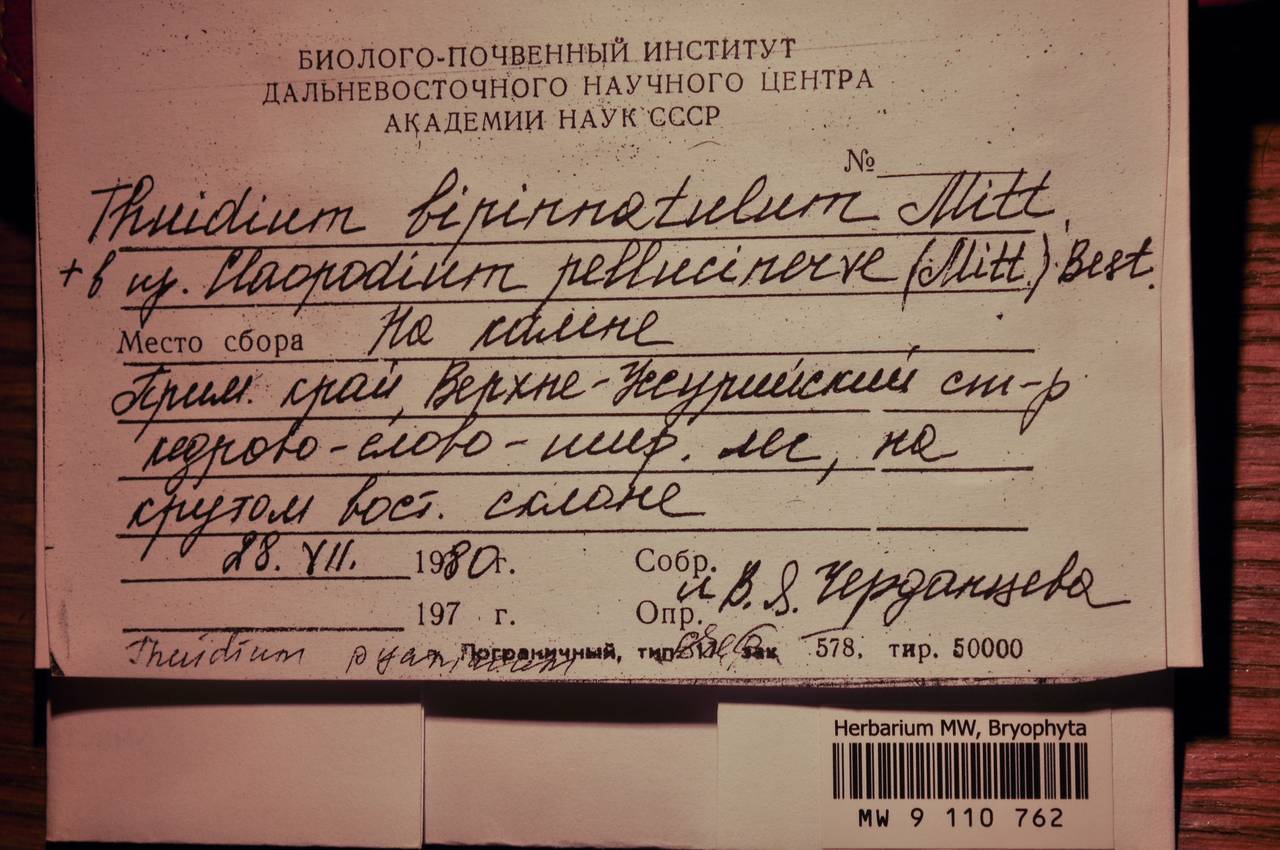 БИОЛОГО-ПОЧВЕННЫЙ ИНСТИТУТ
ДАЛЬНЕВОСТОЧНОГО НАУЧНОГО ЦЕНТРА
АКАДЕМИИ НАУК СССР
№
Thuidium bipinnatulum Mitt.
+ в пр. Claopodium pellucinerve (Mitt.) Best.
Место сбора На камне
Прим. край, Верхне-Уссурийский ст-р
кедрово-елово-шир. лес, на
крутом вост. склоне
28. VII. 1980 г. Собр.
197 г. Опр. и В. Я. Черданцева
Thuidium
Пограничный, тип. 17 зак 578, тир. 50000
Herbarium MW, Bryophyta
MW 9 110 762